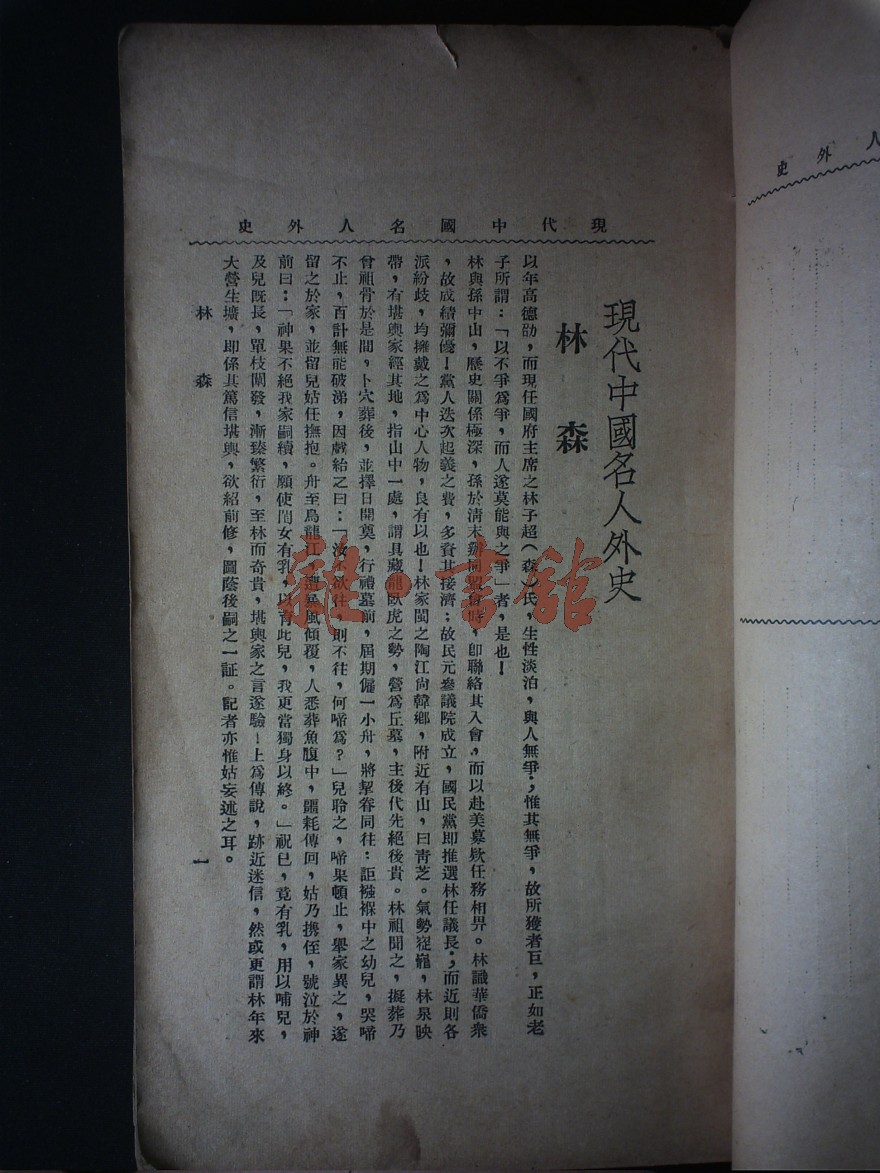 現代中國名人外史
現代中國名人外史
林森
以年高德劭，而現任國府主席之林子超（森）氏，生性淡泊，與人無爭；惟其無爭，故所獲者巨，正如老
子所謂：「以不爭爲爭，而人遂莫能與之爭」者，是也！
林與孫中山，歷史關係極深，孫於清末辦同盟會時，卽聯絡其入會，而以赴美募欵任務相畀。林識華僑衆
，故成績彌優！黨人迭次起義之費，多資其接濟；故民元參議院成立，國民黨卽推選林任議長；而近則各
派紛歧，均擁戴之爲中心人物，良有以也！林家閩之陶江尚韓鄉，附近有山，曰靑芝。氣勢，林泉映
帶，有堪輿家經其地，指山中一處，謂具藏龍臥虎之勢，營爲丘墓，主後代先絕後貴。林祖聞之，擬葬乃
曾祖骨於是間，卜穴葬後，並擇日開奠，行禮墓前，屆期僱一小舟，將挈眷同往：詎襁褓中之幼兒，哭啼
不止，百計無能破涕，因戲紿之曰：「汝不欲往，則不往，何啼爲？」兒聆之，啼果頓止，舉家異之，遂
留之於家，並留兒姑任撫抱。舟至烏龍江，遭暴風傾覆，人悉葬魚腹中，噩耗傳回，姑乃携侄，號泣於神
前曰：「神果不絕我家嗣續，願使閨女有乳，以育此兒，我更當獨身以終。」祝已，竟有乳，用以哺兒，
及兒既長，單枝闡發，漸臻繁衍，至林而奇貴，堪輿家之言遂驗！上爲傳說，跡近迷信，然或更謂林年來
大營生壙，卽係其篤信堪輿，欲紹前修，圖蔭後嗣之一証。記者亦惟姑妄述之耳。
林森 一
人外史
雜·書館